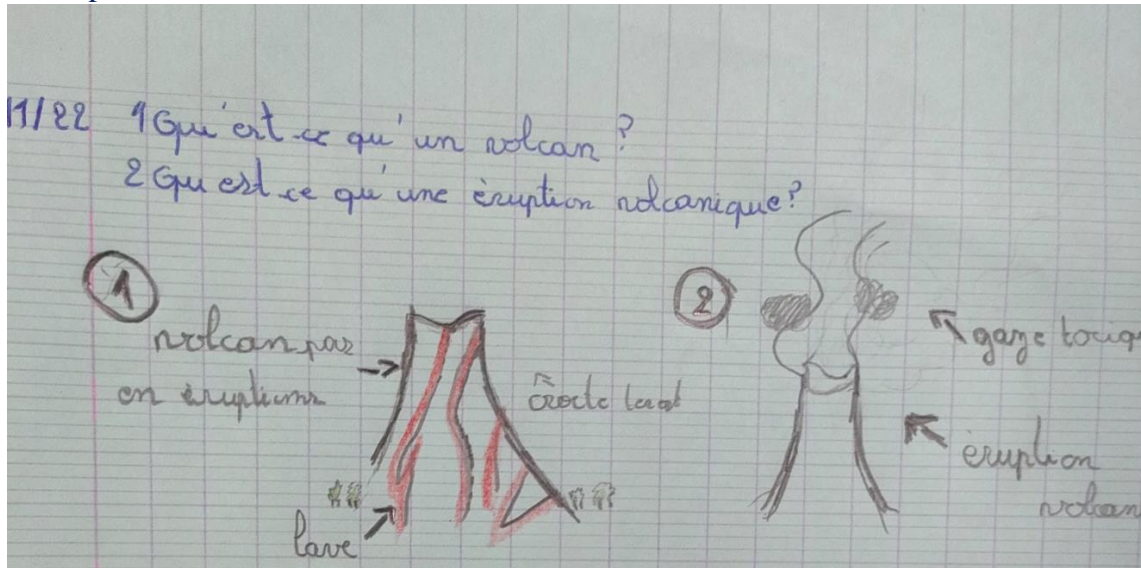 11/22 1 Qu'est-ce qu'un volcan?
2 Qu'est ce qu'une éruption volcanique?
1
volcan pas
en éruptions
lave
2
gaze toxiq
éruption
volcan